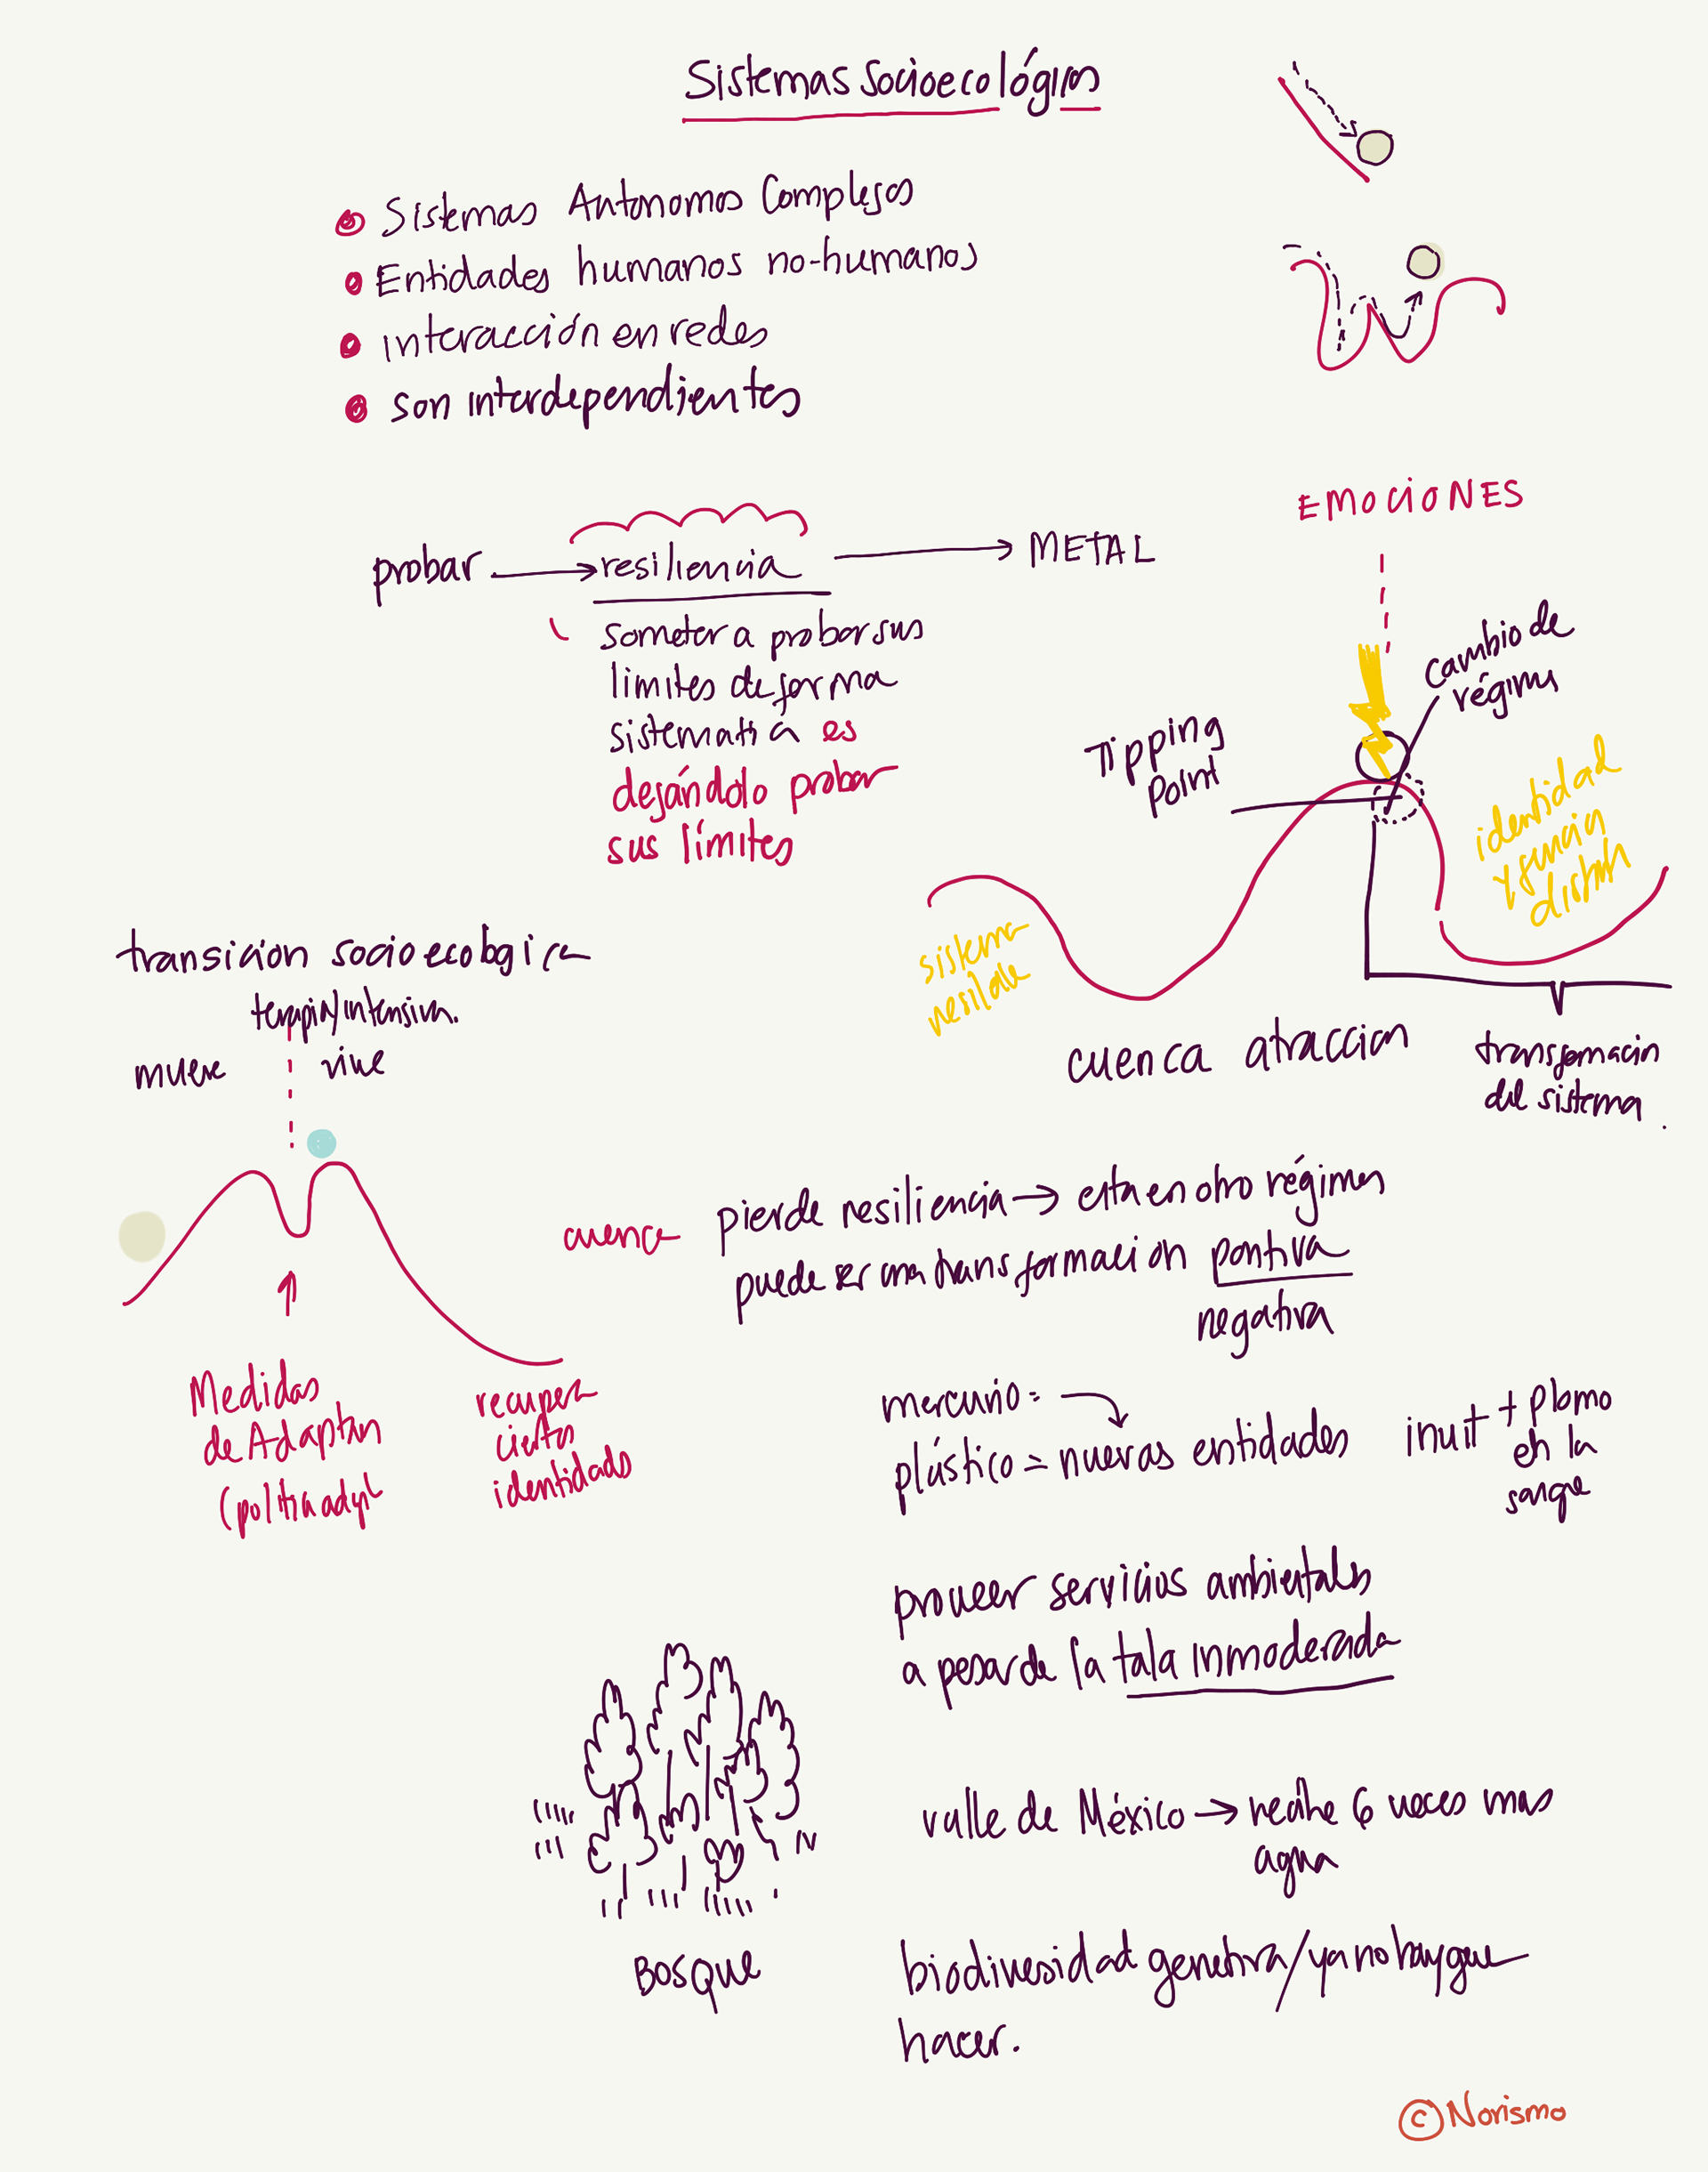 Sistemas socioecológicos
Sistemas Autonomos Complejos
Entidades humanos no-humanos
interacción en redes
son interdependientes
EMOCIONES
probar → resiliencia → METAL
someter a probar sus
limites de forma
sistematica es
dejándolo probar
sus límites
cambio de
régimen
Tipping
point
identidad
y función
distinta
sistema
resiliente
cuenca atraccion
transformacion
del sistema.
transición socioecologica
terapia intensiva.
muere
vive
Medidas
de Adaptan
(politica
recupera
ciertas
identidades
cuenca pierde resiliencia → esta en otro régimen
puede ser una transformacion positiva
negativa
mercurio =
plástico = nuevas entidades
inuit + plomo
en la
sangre
proveer servicios ambientales
a pesar de la tala inmoderada
valle de México → recibe 6 veces mas
agua
BOSQUE
biodiversidad genetica/ya no hay que
hacer.
© Norismo